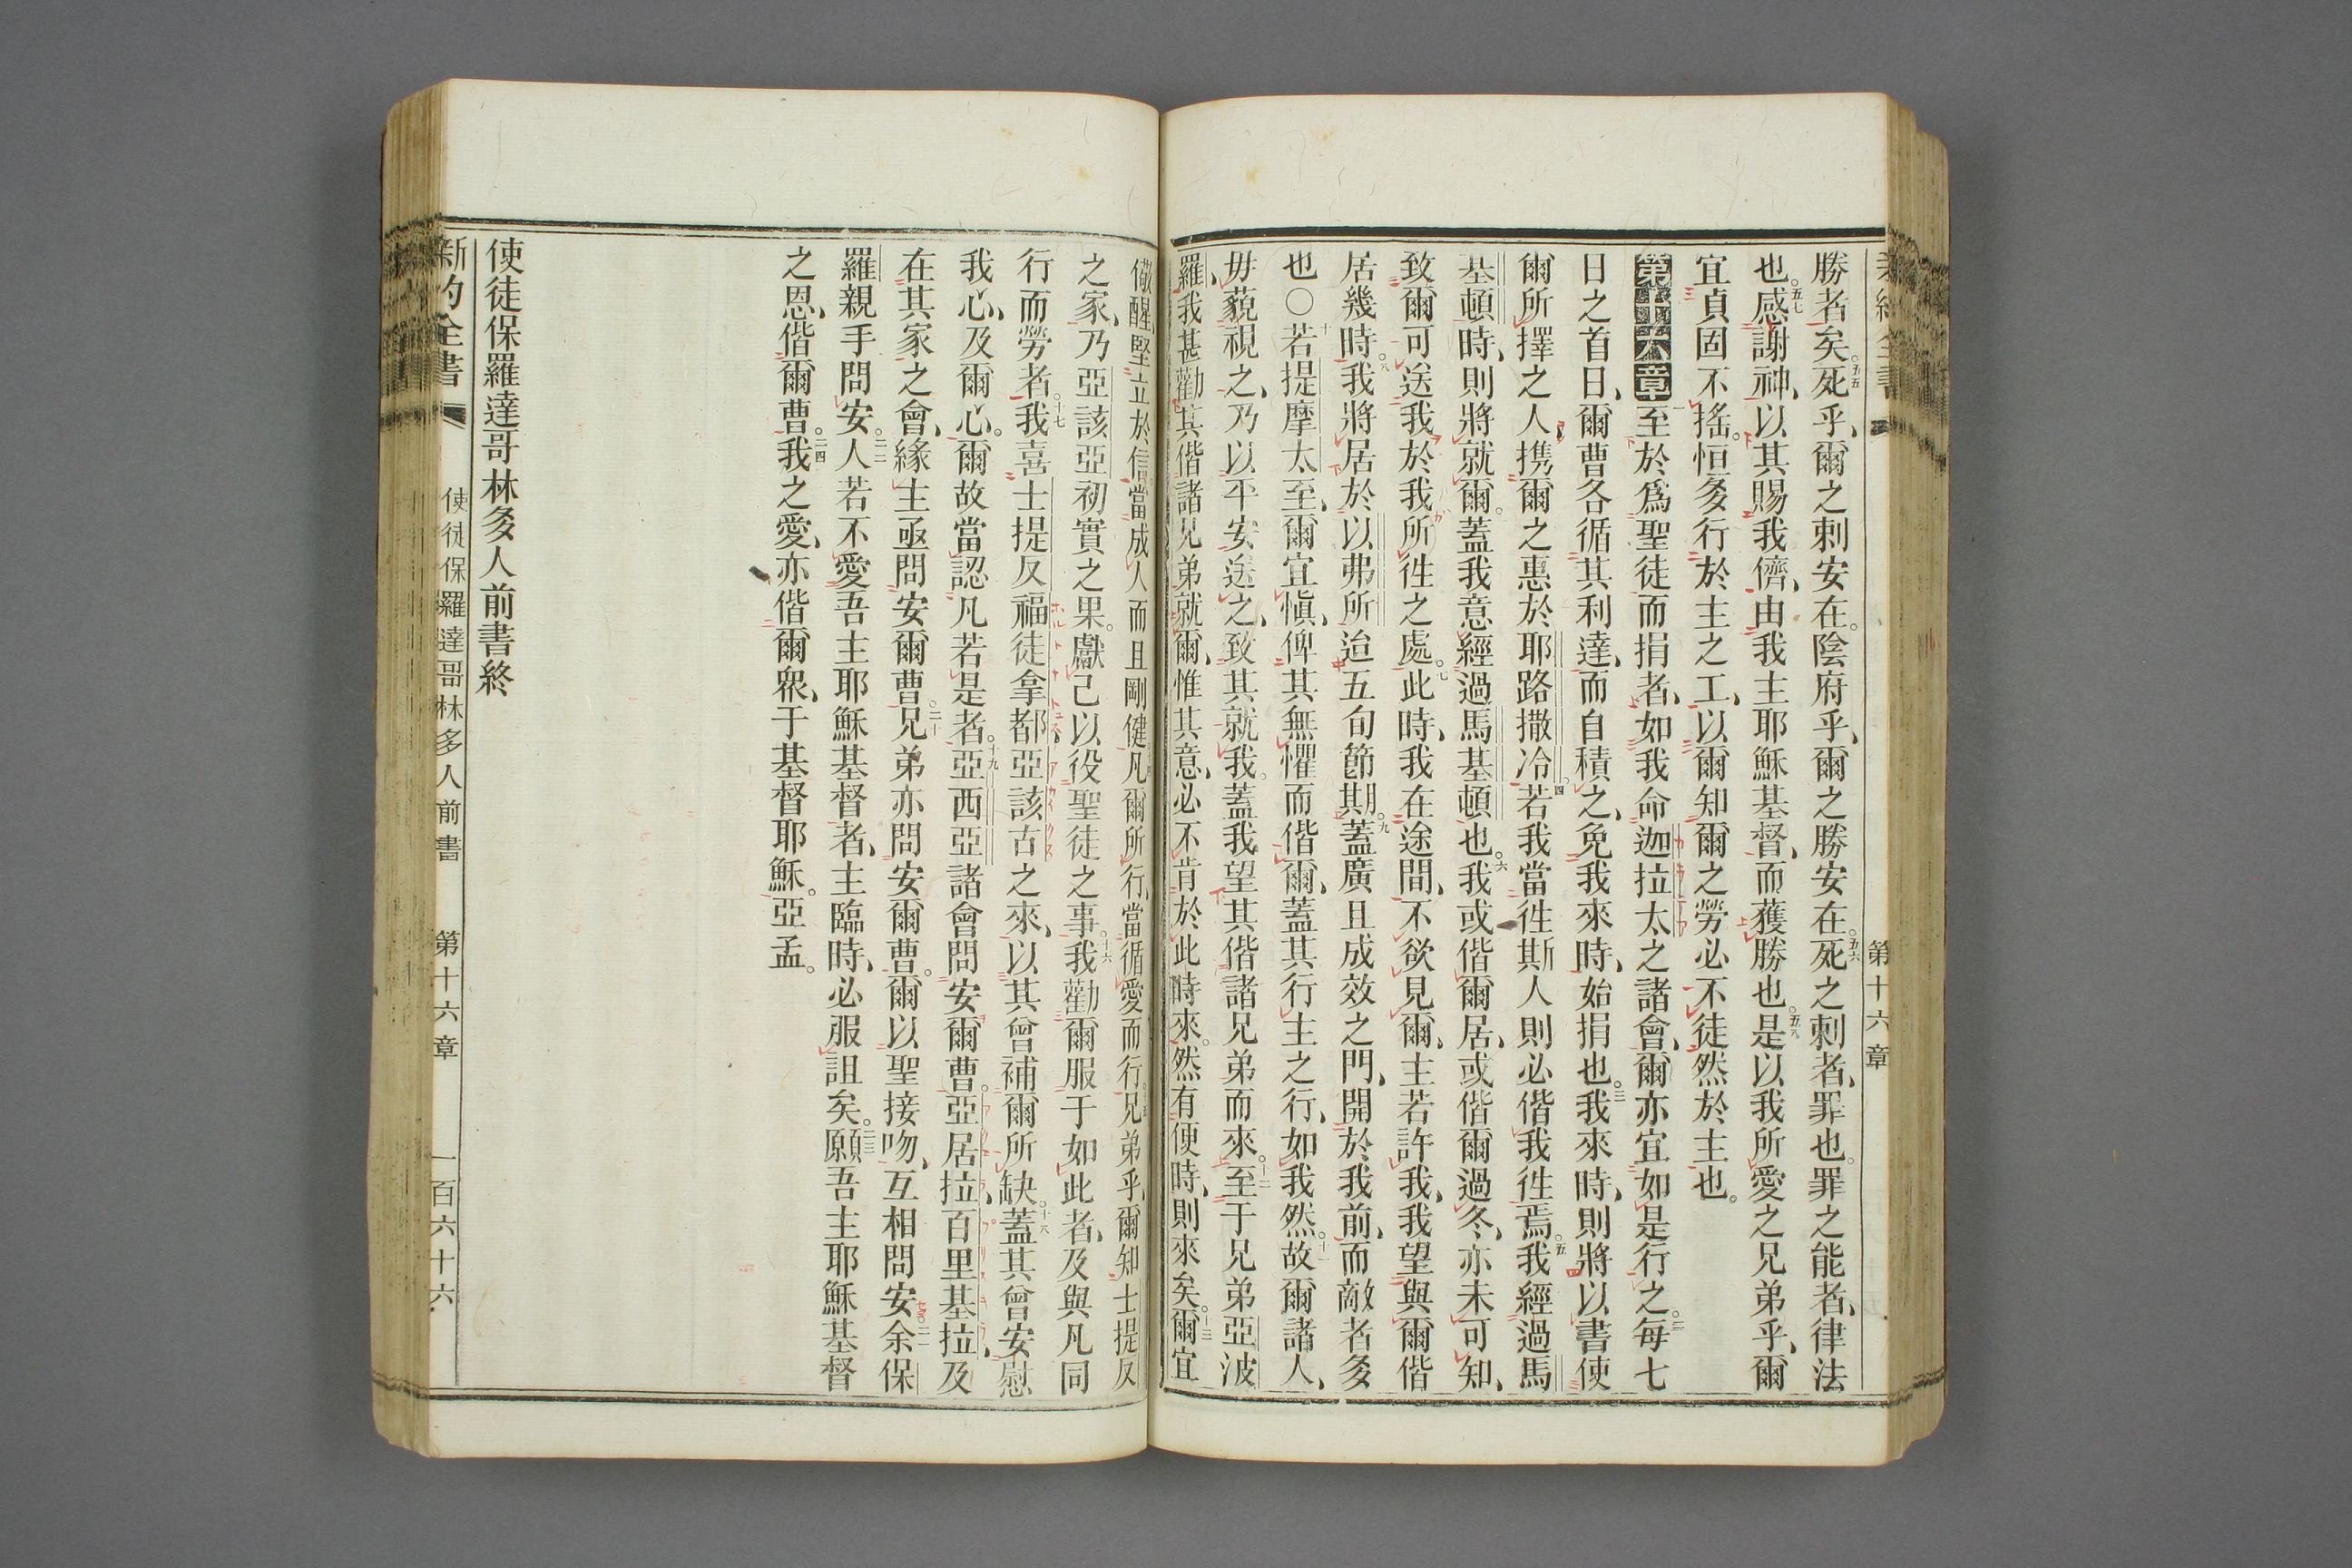 第十六章
勝者矣。五五死乎、爾之刺安在。陰府乎、爾之勝安在。五六死之刺者、罪也。罪之能者、律法
也。五七感謝神、以其賜我儕、由我主耶穌基督、而獲勝也。五八是以我所愛之兄弟乎、爾
宜貞固不搖。恒多行於主之工、以爾知爾之勞必不徒然於主也。
第十六章一至於爲聖徒而捐者、如我命迦拉太之諸會、爾亦宜如是行之。二每七
日之首日、爾曹各循其利達、而自積之、免我來時、始捐也。三我來時、則將以書使
爾所擇之人、携爾之惠於耶路撒冷。四若我當徃斯人則必偕我徃焉。五我經過馬
基頓時、則將就爾。蓋我意經過馬基頓也。六我或偕爾居、或偕爾過冬、亦未可知、
致爾可送我於我所徃之處。七此時、我在途間、不欲見爾、主若許我、我望與爾偕
居幾時。八我將居於以弗所迨五旬節期。九蓋廣且成效之門、開於我前、而敵者多
也〇十若提摩太至、爾宜愼、俾其無懼而偕爾、蓋其行主之行、如我然。十一故爾諸人、
毋藐視之、乃以平安送之、致其就我。蓋我望其偕諸兄弟而來。十二至于兄弟亞波
羅、我甚勸其偕諸兄弟就爾、惟其意、必不肯於此時來。然有便時、則來矣。十三爾宜
儆醒、堅立於信。當成人而且剛健。凡爾所行、當循愛而行。兄弟乎、爾知士提反
之家、乃亞該亞初實之果。獻己以役聖徒之事。十六我勸爾服于如此者、及與凡同
行而勞者。十七我喜士提反福徒拿都亞該古之來、以其曾補爾所缺。十八蓋其曾安慰
我心、及爾心。爾故當認凡若是者。十九亞西亞諸會問安爾曹。亞居拉、百里基拉、及
在其家之會、緣主亟問安爾曹。二十兄弟亦問安爾曹。爾以聖接吻、互相問安。二一余保
羅親手問安。二二人若不愛吾主耶穌基督者、主臨時、必服詛矣。二三願吾主耶穌基督
之恩、偕爾曹。二四我之愛、亦偕爾衆、于基督耶穌。亞孟。
使徒保羅達哥林多人前書終
新約全書 使徒保羅達哥林多人前書 第十六章 一百六十六